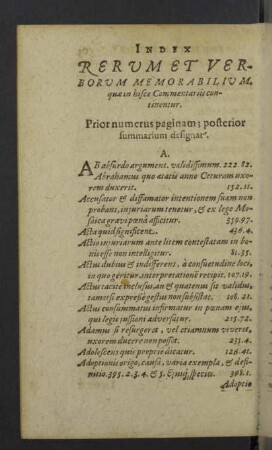 INDEX
RERUM ET VER-
BORVM MEMORABILIVM,
quæ in hisce Commentariis con-
tinentur.
Prior numerus paginam; posterior
summarium designat.
A.
AB absurdo argument. validissimum. 222. 82.
Abrahamus quo ætatis anno Ceturam uxo-
rem duxerit. 152. 11.
Accusator & diffamator intentionem suam non
probans, injuriarum tenetur, & ex lege Mo-
saica gravi pœnâ afficitur. 359. 97.
Acta quid significent. 436. 4.
Actio injuriarum ante litem contestatam in bo-
nis esse non intelligitur. 81. 35.
Actus dubius & indifferens, à consuetudine loci,
in quo geritur, interpretationē recipit. 107. 19.
Actus tacitè inclusus, an & quatenus sit validus,
tametsi expressè gestus non subsistat. 108. 21.
Actus consummatus infirmatur in pœnam ejus,
qui legis jussioni adversatur. 215. 72.
Adamus si resurgeret, vel etiamnum viveret,
uxorem ducere non posset. 233. 4.
Adolescens quis propriè dicatur. 128. 41.
Adoptionis origo, causa, varia exempla, & defi-
nitio. 395. 2. 3. 4. & 5. Ejusq; species. 398. 1.
Adoptio